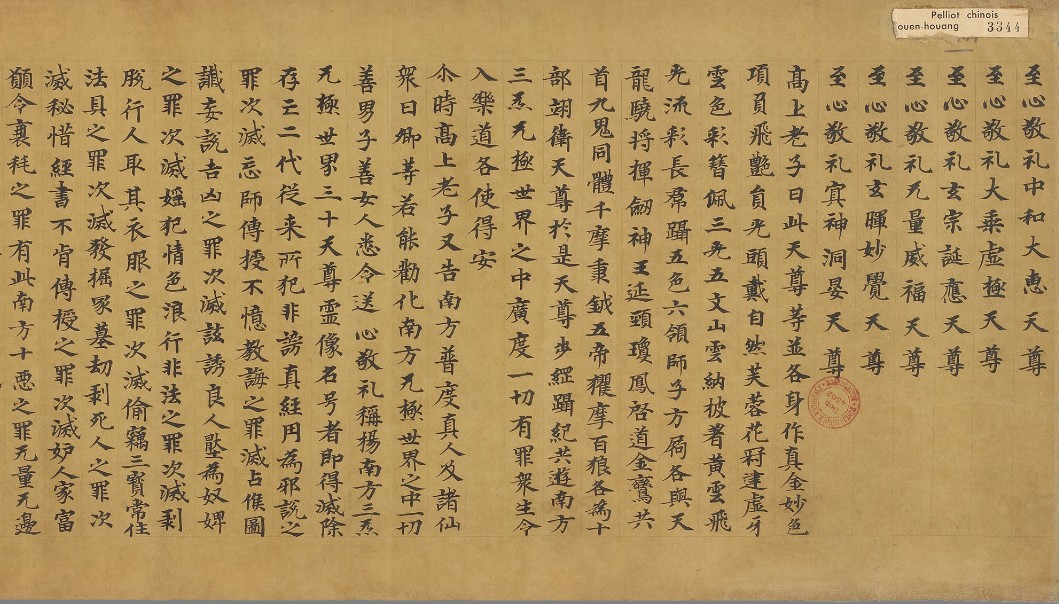 Pelliot chinois
ouen-houang 3344
至心敬礼中和大恵天尊
至心敬礼大乘虚極天尊
至心敬礼玄宗誕應天尊
至心敬礼无量威福天尊
至心敬礼玄暉妙覺天尊
至心敬礼寘神洞晏天尊
高上老子曰此天尊等並各身作真金妙色
項負飛艷負光頭戴自然芙蓉花冠建虚牙
雲色彩簪佩三光五文山雲納披著黄雲飛
光流彩長帬躡五色六領師子方扄各與天
龍驍将揮劒神王延頸瓊鳳啓道金鸞共
首九鬼同體千摩秉鉞五帝玃摩百狼各為十
部翊衛天尊於是天尊步綑躡紀共遊南方
三炁无極世界之中廣度一切有罪衆生令
入樂道各使得安
尒時高上老子又告南方普度真人及諸仙
衆曰卿等若能勸化南方无極世界之中一切
善男子善女人悉令送心敬礼稱揚南方三炁
无極世界三十天尊霊像名号者即得滅除
存亡二代従来所犯非謗真經円為邪說之
罪次滅忌師傳授不憶教誨之罪滅占候圖
讖妄說吉凶之罪次滅誸誘良人壓為奴婢
之罪次滅婬犯情色浪行非法之罪次滅剥
脱行人取其衣服之罪次滅偷竊三寶常住
法具之罪次滅發掘冢墓劫剥死人之罪次
滅秘惜經書不肯傳授之罪次滅妒人家富
願令衰耗之罪有此南方十悪之罪无量无邊